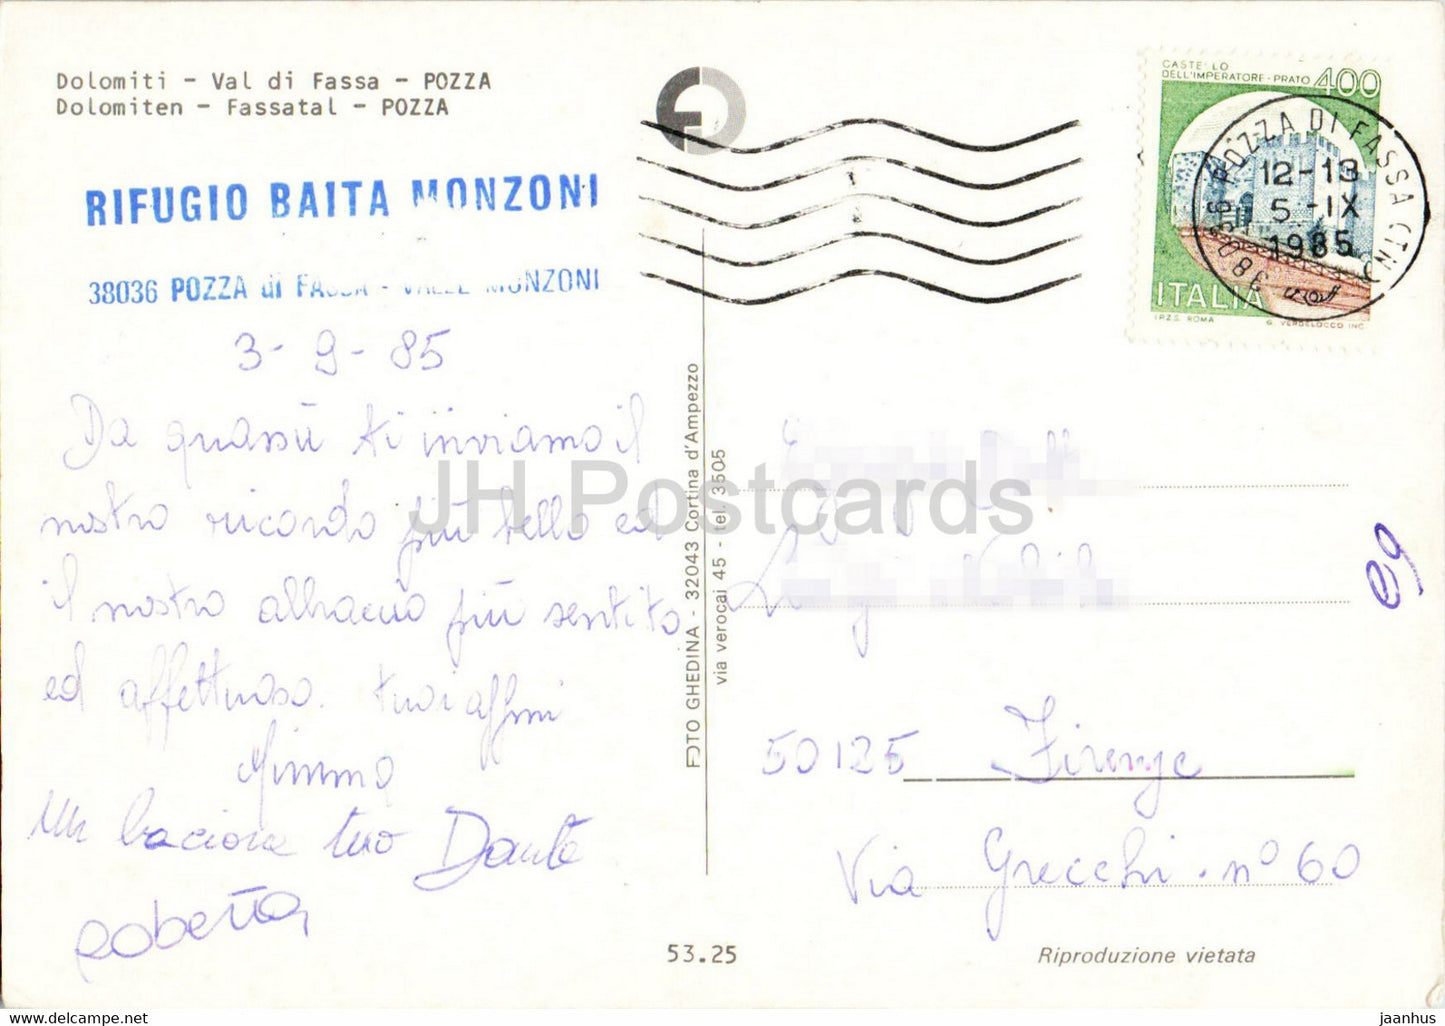 Dolomiti - Val di Fassa - POZZA
Dolomiten - Fassatal - POZZA
RIFUGIO BAITA MONZONI
38036 POZZA di FASSA - VALLE MONZONI
3-9-85
Da quassù ti inviamo il
nostro ricordo più bello ed
il nostro abbraccio più sentito
ed affettuoso. tuoi affmi
Mimmo
Un bacione tuo Dante
Roberta
CASTELLO
DELL'IMPERATORE-PRATO 400
ITALIA
I.P.Z.S. ROMA
G. VERDELOCCO INC.
38036 POZZA DI FASSA (TN)
12-13
5-IX
1985
FOTO GHEDINA - 32043 Cortina d'Ampezzo
via verocai 45 - tel. 3505
50125 Firenze
Via Grecchi. nº 60
e9
53.25
Riproduzione vietata
JH Postcards
www.hippostcard.com
jaanhus